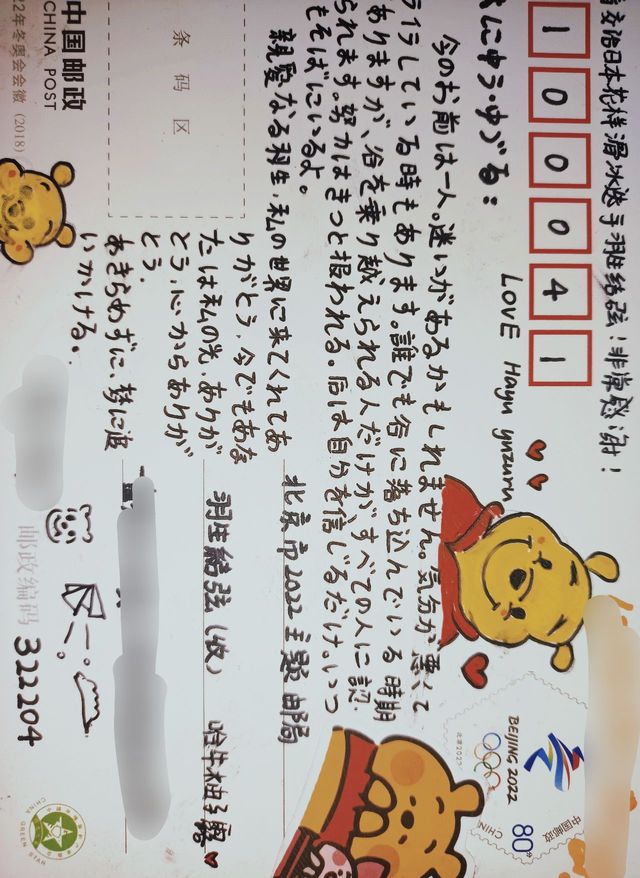 请交给日本花样滑冰选手羽生结弦！非常感谢！
1 0 0 0 4 1
LOVE Hayu yuzuru
にゆうゆづる：
今のお前は一人。迷いがあるかもしれません。気分が悪くて
ライラしている時もあります。誰でも谷に落ち込んでいる時期
ありますが、谷を乗り越えられる人だけがすべての人に認
られます。努力はきっと報われる。后は自分を信じるだけ。いつ
もそばにいるよ。
親愛なる羽生、私の世界に来てくれてあ
りがとう、今でもあな
たは私の光、ありが
とう、心からありが
とう。
あきらめずに、夢に追
いかける。
条码区
北京市2022主题邮局
羽生結弦（收）
邮政编码 322204
中国邮政
CHINA POST
22年冬奥会会徽 (2018)
BEIJING 2022
北京2022
80分
中国邮政
CHIN
CHINA GREEN STAR